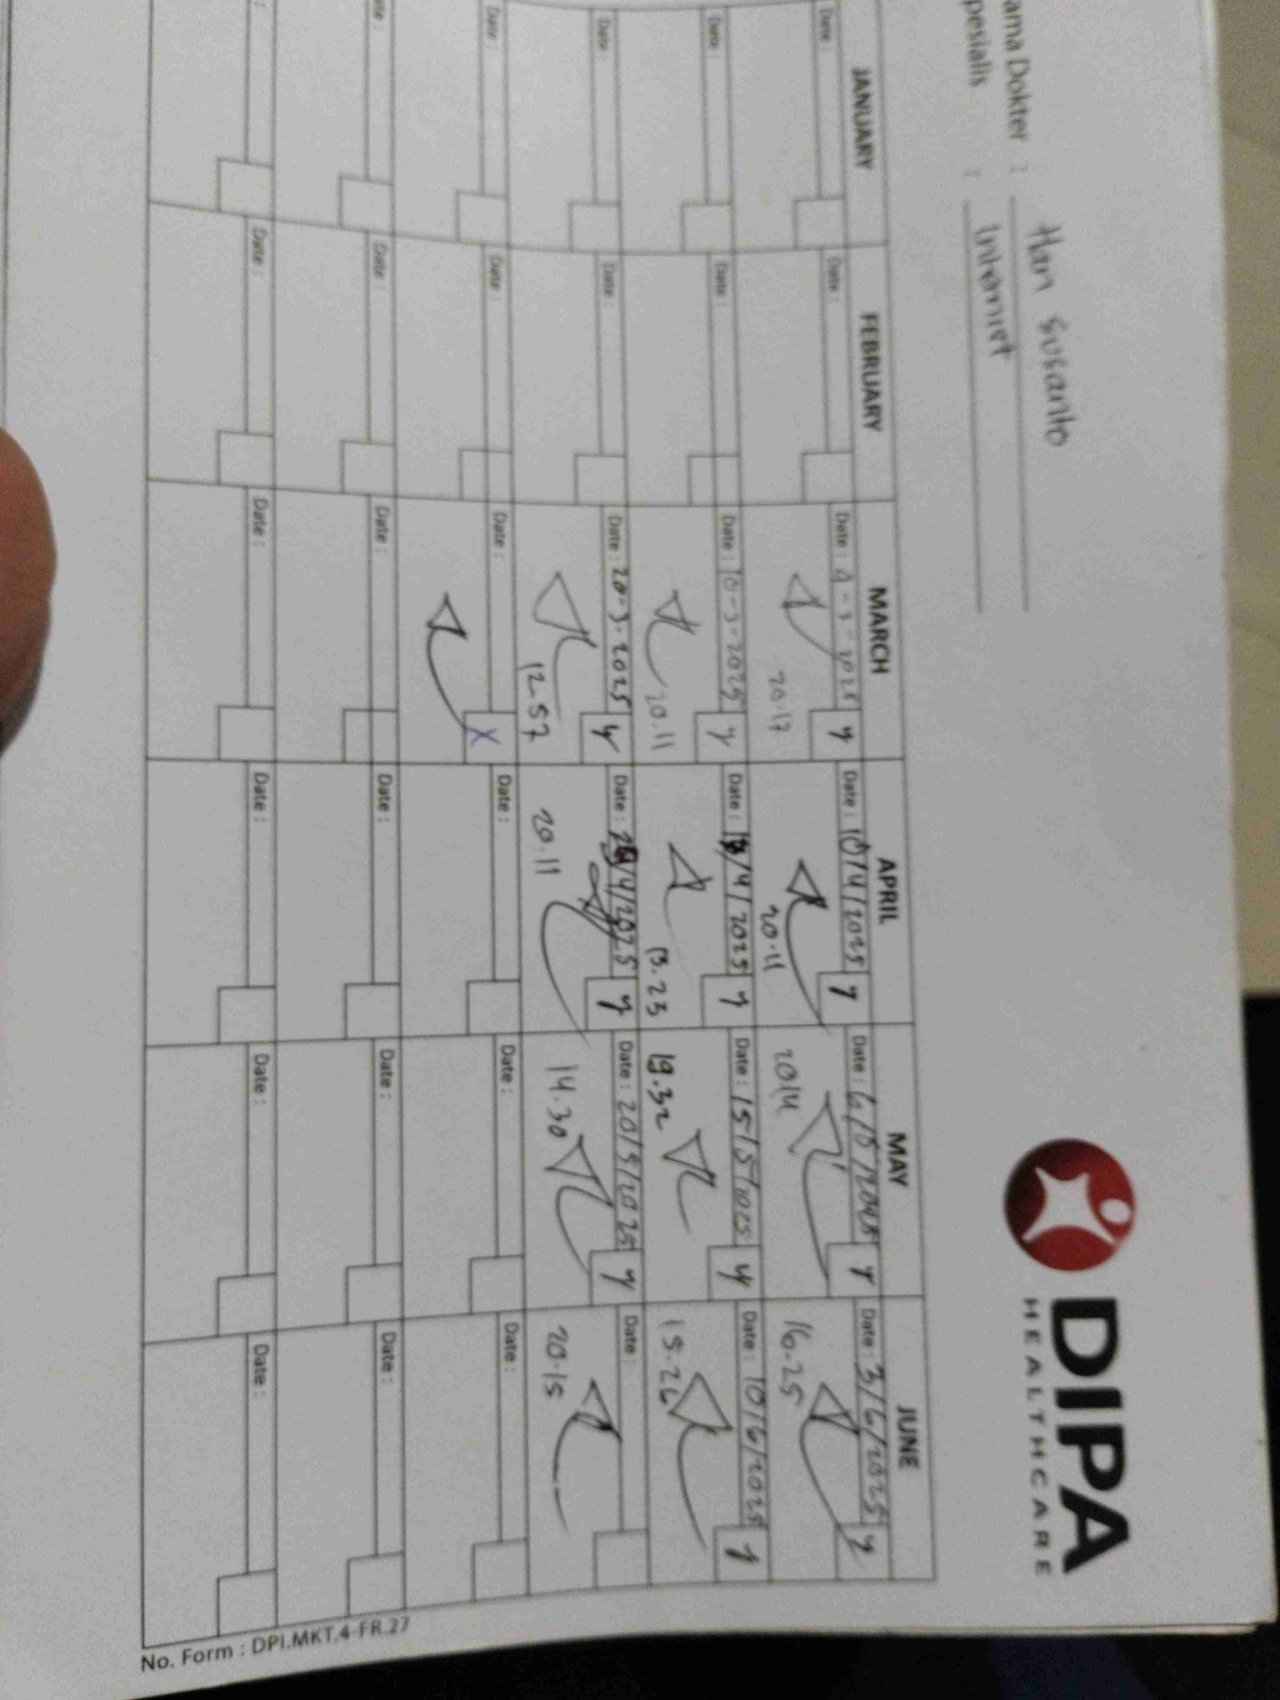 DIPA
HEALTHCARE
ama Dokter : Han Susanto
pesialis : Internist
JANUARY FEBRUARY MARCH APRIL MAY JUNE
Date : Date : Date : 4-3-2025 y Date : 10/4/2025 y Date : 6/5/2025 y Date : 3/6/2025 y
20.17 20.11 2014 16.25
Date : Date : Date : 10-3-2025 y Date : /4/2025 y Date : 15/5/2025 y Date : 10/6/2025 y
20.11 13.23 19.32 15.26
Date : Date : Date : 20-3-2025 y Date : /4/2025 y Date : 20/5/2025 y Date :
12.57 20.11 14.30 20.15
Date : Date : Date : X Date : Date : Date :
ate : Date : Date : Date : Date : Date :
: Date : Date : Date : Date : Date :
No. Form : DPI.MKT.4-FR.27